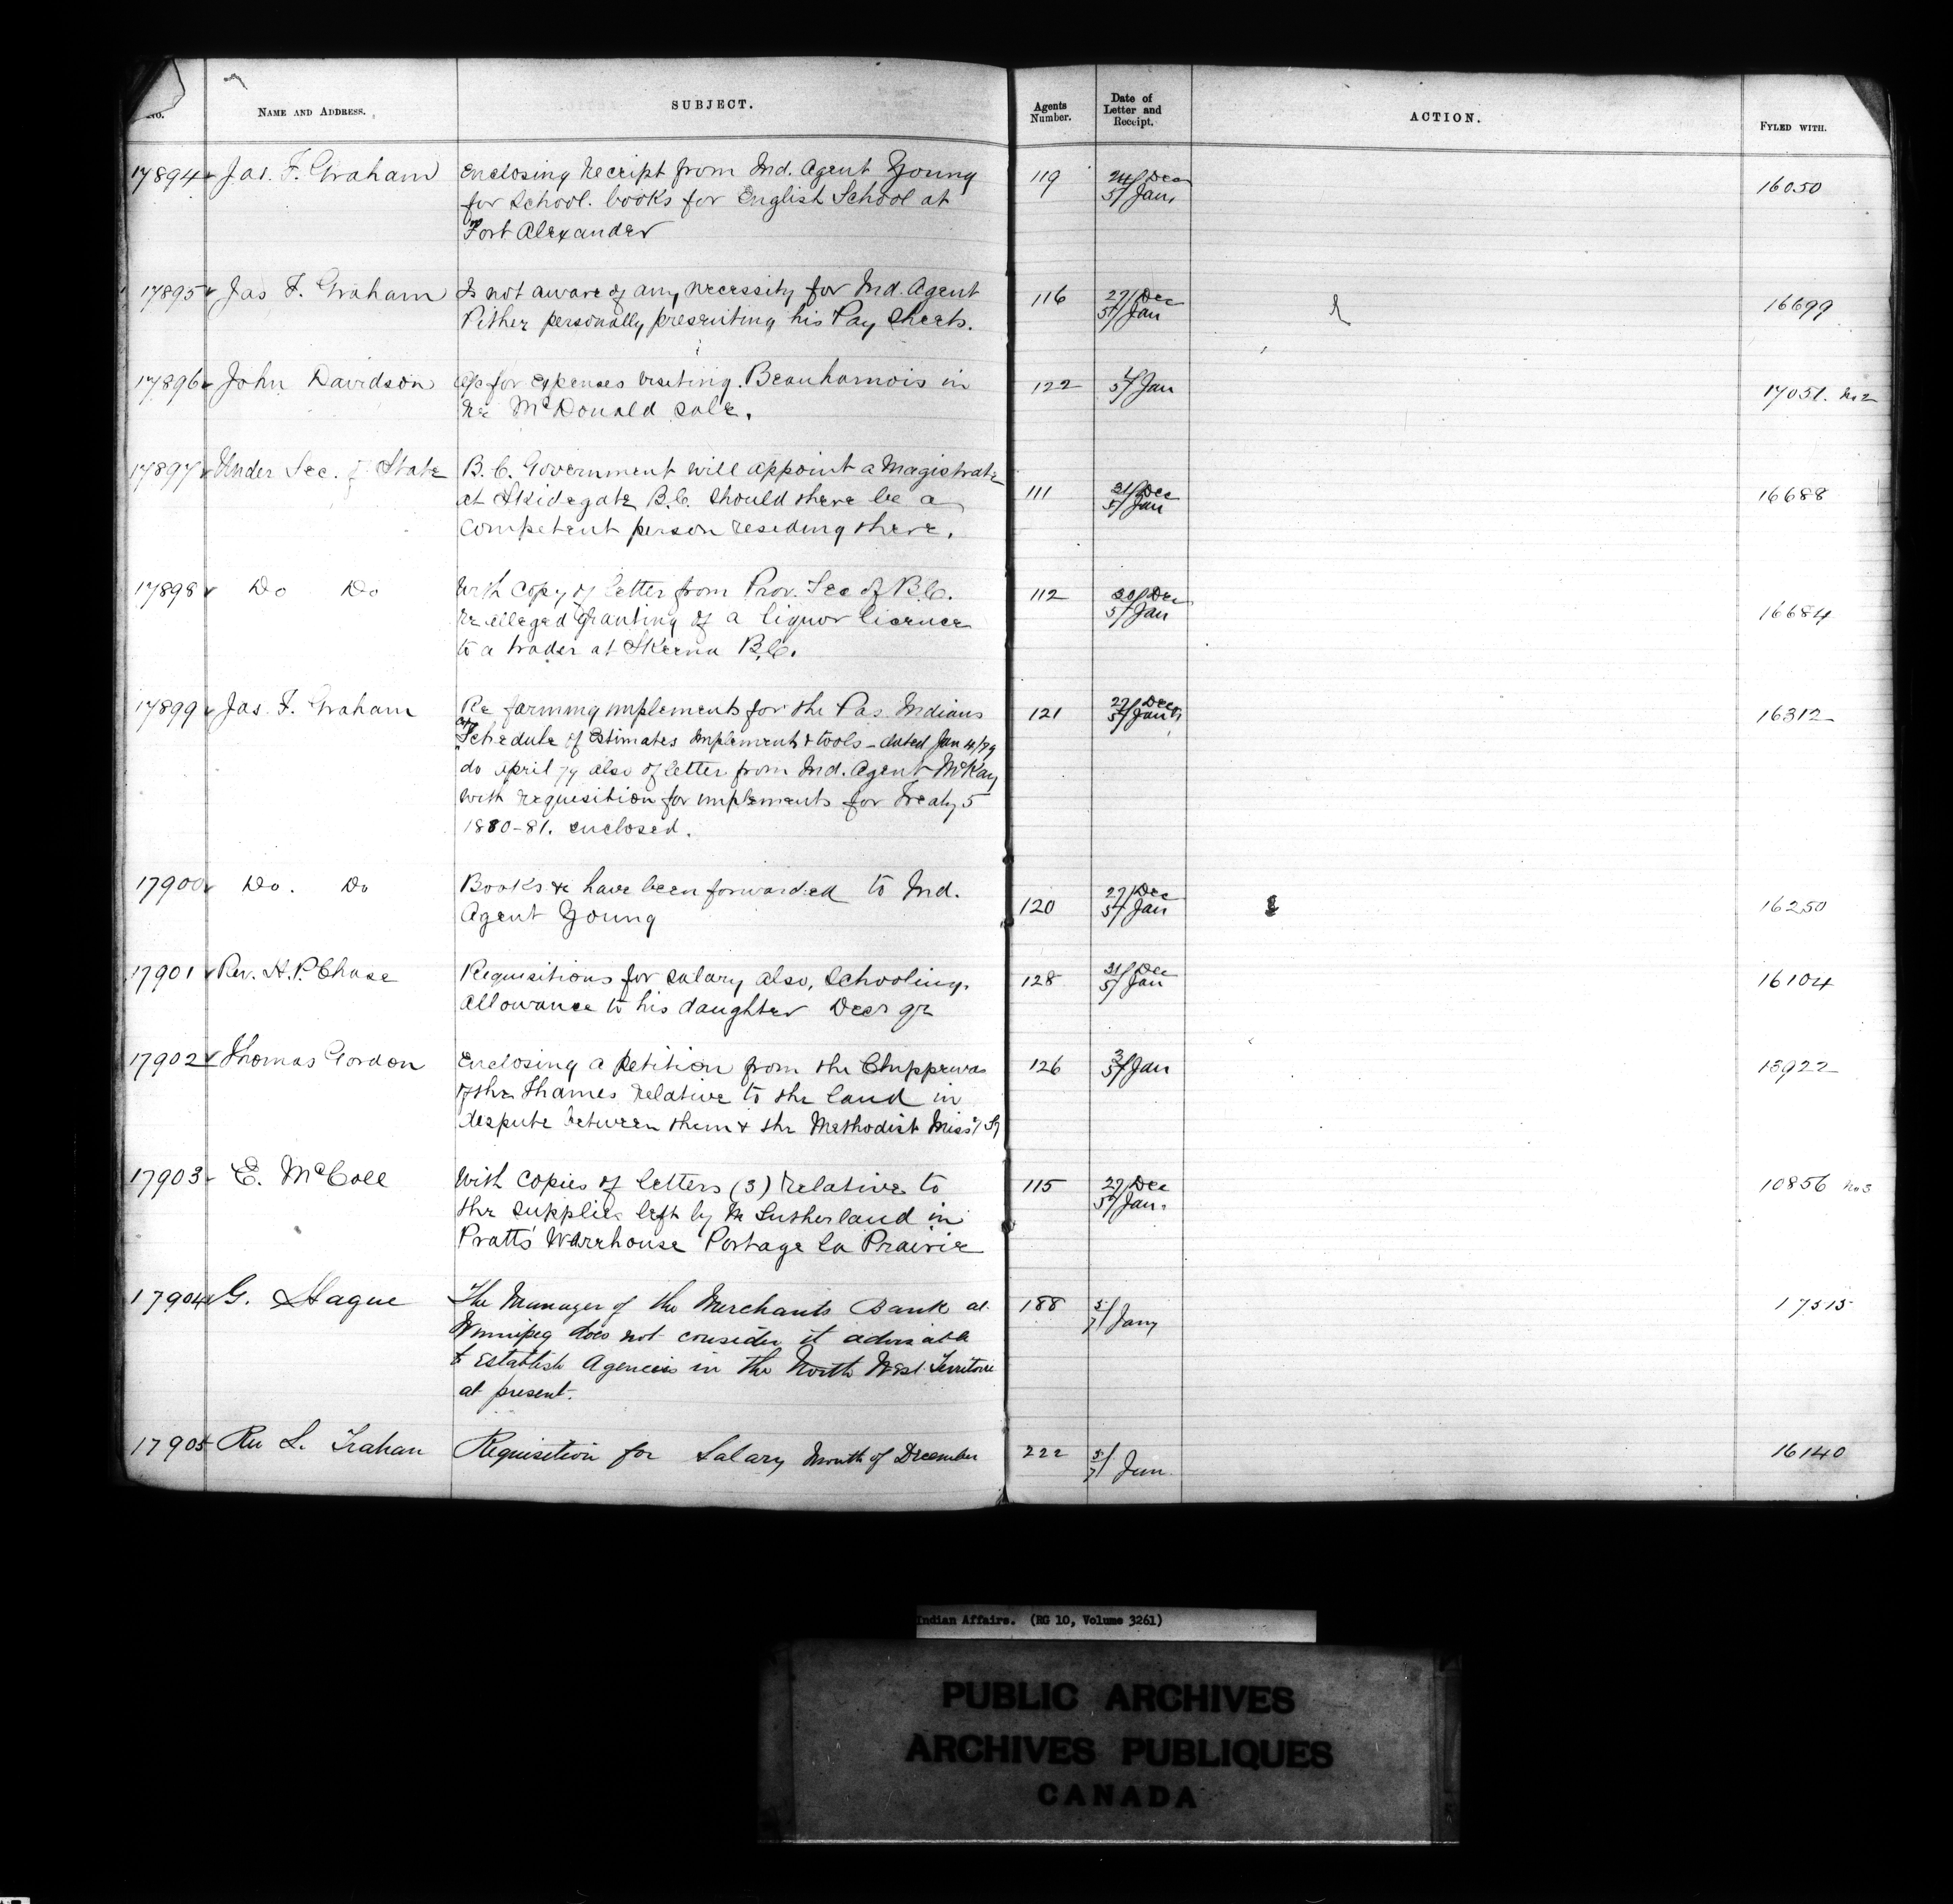 No. NAME AND ADDRESS. SUBJECT. Agents Number. Date of Letter and Receipt. ACTION. FYLED WITH.
17894 Jas. F. Graham Enclosing Receipt from Ind. Agent Young 119 24/Dec 5/Jan. 16050
for School. books for English School at
Fort Alexander
17895 Jas F. Graham Is not aware of any necessity for Ind. Agent 116 27/Dec 5/Jan 16699
Pither personally presenting his Pay Sheets.
17896 John Davidson a/c for expenses visiting Beauharnois in 122 5/Jan 17051. No 2
re McDonald sale.
17897 Under Sec. of State B.C. Government will appoint a Magistrate 111 31/Dec 5/Jan 16688
at Skidegate B.C. should there be a
competent person residing there.
17898 Do Do With copy of letter from Prov. Sec of B.C. 112 30/Dec 5/Jan 16684
re alleged granting of a liquor licence
to a trader at Skeena B.C.
17899 Jas. F. Graham Re farming implements for the Pas Indians 121 27/Dec 5/Jan 16312
Schedule of Estimates implements & tools - dated Jan 4/79
do April 79 also of letter from Ind. Agent McKay
with requisition for implements for Treaty 5
1880-81. enclosed.
17900 Do. Do Books &c have been forwarded to Ind. 120 27/Dec 5/Jan 16250
Agent Young
17901 Rev. H. P. Chase Requisitions for salary also, schooling 128 31/Dec 5/Jan 16104
allowance to his daughter Decr qr
17902 Thomas Gordon Enclosing a Petition from the Chippewas 126 3/5/Jan 13922
of the Thames relative to the land in
dispute between them & the Methodist Miss'y Sy
17903 E. McColl With copies of letters (3) relative to 115 27/Dec 5/Jan. 10856 No 3
the supplies left by Mr Sutherland in
Pratts' Warehouse Portage la Prairie
17904 G. Hague The Manager of the Merchants Bank at 188 5/7/Jany 17515
Winnipeg does not consider it advisable
to establish Agencies in the North West Territorie
at present.
17905 Rev L. Trahan Requisition for Salary Month of December 222 5/7/Jan 16140
Indian Affairs. (RG 10, Volume 3261)
PUBLIC ARCHIVES
ARCHIVES PUBLIQUES
CANADA